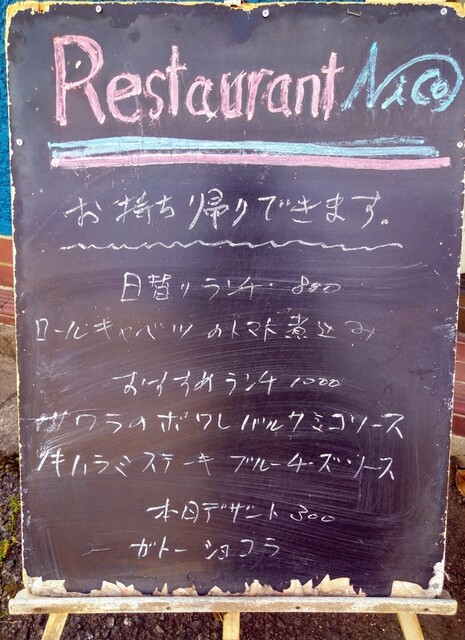 Restaurant Nico
お持ち帰りできます。
日替りランチ・800
ロールキャベツのトマト煮込み
おすすめランチ 1000
サワラのポワレ バルサミコソース
牛ハラミステーキ ブルーチーズソース
本日デザート 300
ガトーショコラ